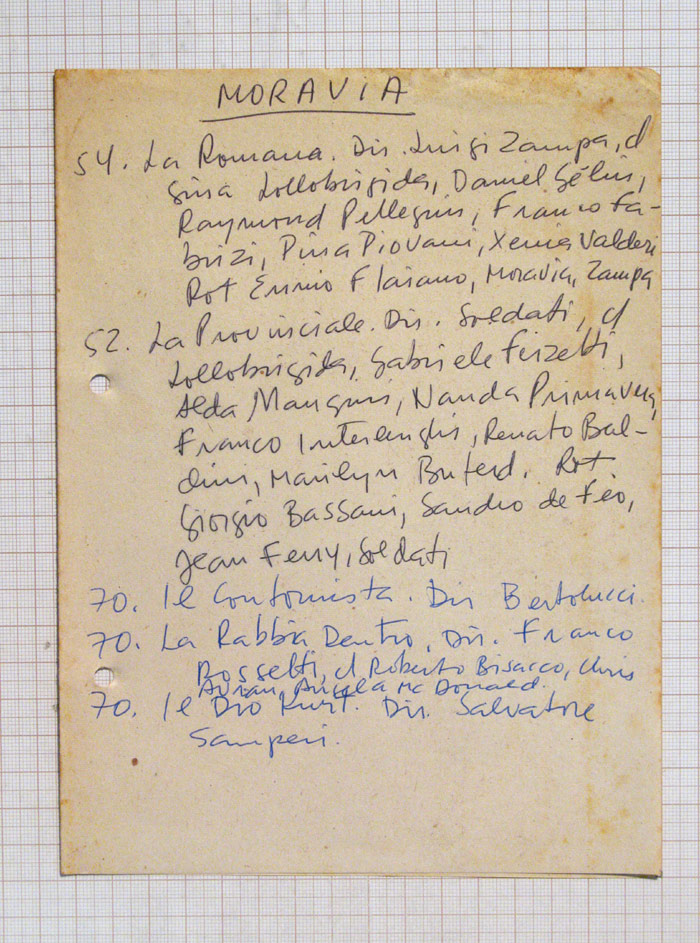 MORAVIA
54. La Romana. Dir. Luigi Zampa, cl
Gina Lollobrigida, Daniel Gélin,
Raymond Pellegrin, Franco Fa-
brizi, Pina Piovani, Xenia Valderi
Rot Ennio Flaiano, Moravia, Zampa
52. La Provinciale. Dir. Soldati, cl
Lollobrigida, Gabriele Ferzetti,
Alda Mangini, Nanda Primavera,
Franco Interlenghi, Renato Bal-
dini, Marilyn Buferd. Rot
Giorgio Bassani, Sandro de Feo,
Jean Ferry, Soldati
70. Il Conformista. Dir Bertolucci.
70. La Rabbia Dentro, Dir. Franco
Rossetti, cl Roberto Bisacco, Chris
Avran, Angela Mc Donald.
70. Il Dio Kurt. Dir. Salvatore
Samperi.